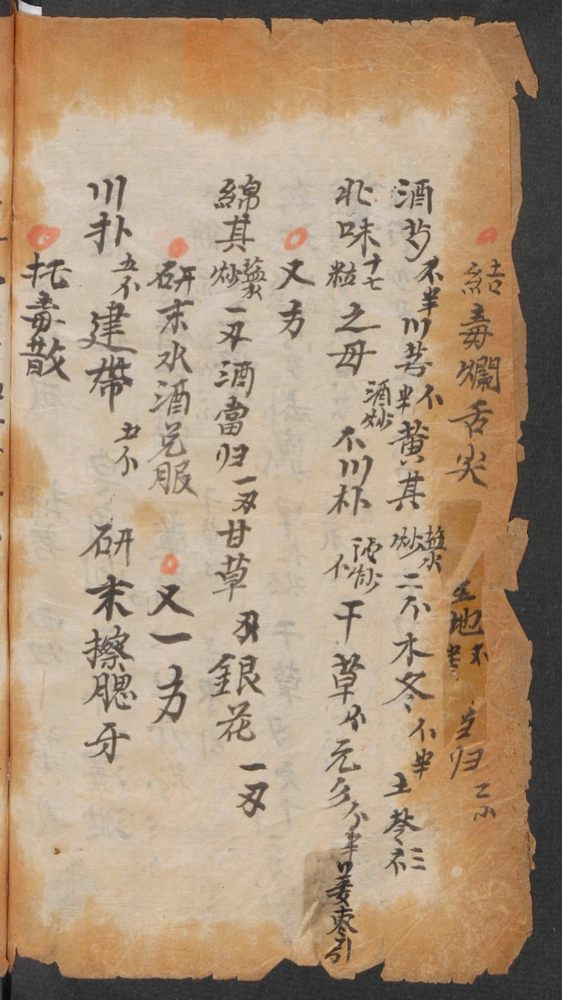 結毒爛舌尖 生地 当归
酒芍 不半 川芎 半不 黄其 蜜炒 二不 木冬 不半 土苓
北味 十七粒 之母 酒炒 不 川朴 酒炒 不 干草 不 元 半 姜枣引
又方
綿其 蜜炒 一刄 酒當归 一刄 甘草 刄 銀花 一刄
研末水酒兑服 又一方
川扑 五不 建帶 五不 研末擦腮牙
托毒散